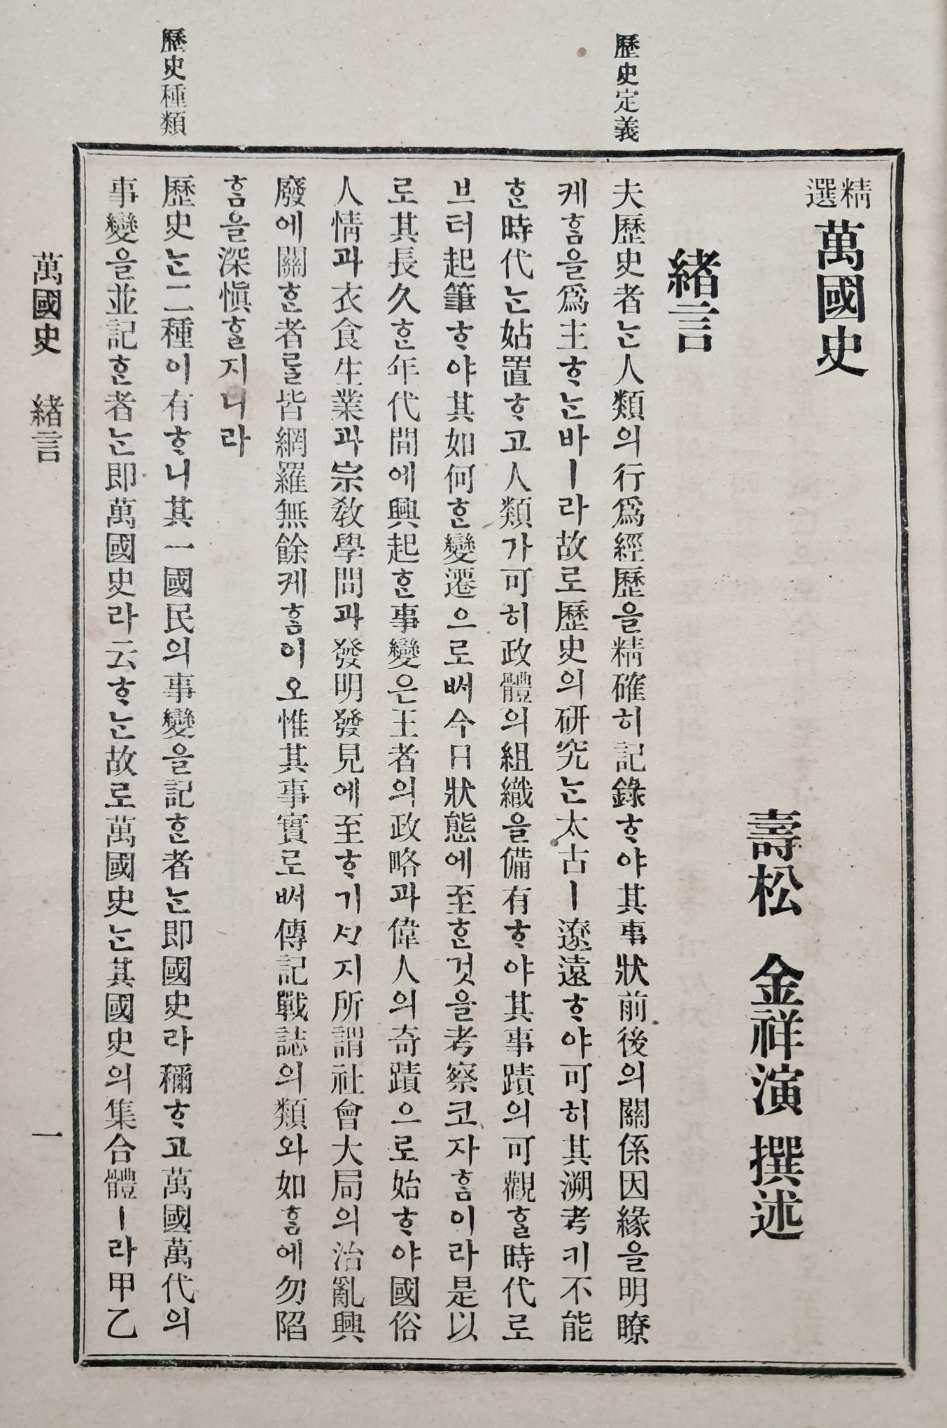 精選 萬國史
壽松 金祥演 撰述
緖言
歷史定義
夫歷史者ᄂᆞᆫ人類의行爲經歷을精確히記錄ᄒᆞ야其事狀前後의關係因緣을明瞭
케ᄒᆞᆷ을爲主ᄒᆞᄂᆞᆫ바ㅣ라故로歷史의硏究ᄂᆞᆫ太古ㅣ遼遠ᄒᆞ야可히其溯考키不能
ᄒᆞᆫ時代ᄂᆞᆫ姑置ᄒᆞ고人類가可히政體의組織을備有ᄒᆞ야其事蹟의可觀ᄒᆞᆯ時代로
브터起筆ᄒᆞ야其如何ᄒᆞᆫ變遷으로ᄡᅥ今日狀態에至ᄒᆞᆫ것을考察코자ᄒᆞᆷ이라是以
로其長久ᄒᆞᆫ年代間에興起ᄒᆞᆫ事變은王者의政略과偉人의奇蹟으로始ᄒᆞ야國俗
人情과衣食生業과宗敎學問과發明發見에至ᄒᆞ기ᄭᆞ지所謂社會大局의治亂興
廢에關ᄒᆞᆫ者ᄅᆞᆯ皆網羅無餘케ᄒᆞᆷ이오惟其事實로ᄡᅥ傳記戰誌의類와如ᄒᆞᆷ에勿陷
ᄒᆞᆷ을深愼ᄒᆞᆯ지니라
歷史種類
歷史ᄂᆞᆫ二種이有ᄒᆞ니其一國民의事變을記ᄒᆞᆫ者ᄂᆞᆫ卽國史라稱ᄒᆞ고萬國萬代의
事變을並記ᄒᆞᆫ者ᄂᆞᆫ卽萬國史라云ᄒᆞᄂᆞᆫ故로萬國史ᄂᆞᆫ其國史의集合體ㅣ라甲乙
萬國史 緖言 一